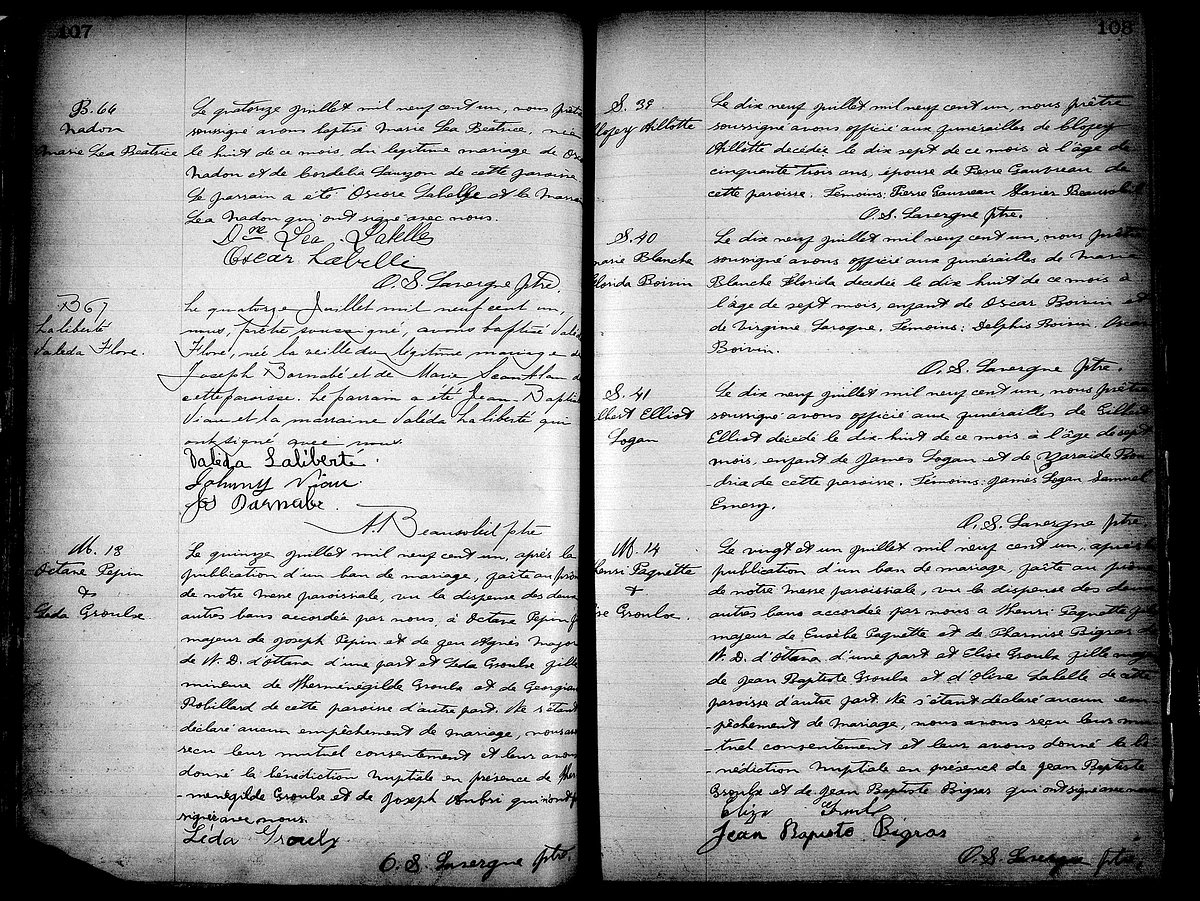 107
B. 66
Nadon
Marie Lea Beatrice
Le quatorze juillet mil neuf cent un, nous prêtre
soussigné avons baptisé Marie Lea Béatrice, née
le huit de ce mois du légitime mariage de
Nadon et de Cordelia Lauzon de cette paroisse
Le parrain a été Oscare Labelle et la
Lea Nadon qui ont signé avec nous.
Lea Labelle
Oscar Labelle
O. S. Lavergne ptre.
B 67
Laliberté
Valeda Flore.
Le quatorze Juillet mil neuf cent un,
nous, prêtre soussigné, avons baptisé
Flore, née la veille du légitime mariage de
Joseph Barnabé et de Marie
cette paroisse. Le parrain a été Jean
Viau et la marraine Valéda Laliberté qui
ont signé avec nous.
Valéda Laliberté
Johnny Viau
Jos Barnabe.
A. Beausoleil ptre
M. 13
Octave Pepin
&
Leda Groulx
Le quinze juillet mil neuf cent un, après la
publication d'un ban de mariage, faite au
de notre messe paroissiale, vu la dispense des deux
autres bans accordée par nous, à Octave Pepin
majeur de Joseph Pepin et de feu Agnès Major
de N. D. d'Ottawa d'une part et Leda Groulx fille
mineure de Herménégilde Groulx et de
Robillard de cette paroisse d'autre part. Ne s'étant
déclaré aucun empêchement de mariage, nous
reçu leur mutuel consentement et leur avons
donné la bénédiction nuptiale en présence de Her-
-ménégilde Groulx et de Joseph Aubri
signé avec nous.
Leda Groulx
O. S. Lavergne ptre.
108
S. 39
Aillotte
Le dix neuf juillet mil neuf cent un, nous prêtre
soussigné avons officié aux funérailles de
Aillotte décédée le dix sept de ce mois à l'âge de
cinquante trois ans, épouse de Pierre Gauvreau de
cette paroisse. Témoins: Pierre Gauvreau Xavier
O. S. Lavergne ptre.
S. 40
Marie Blanche
Florida Boivin
Le dix neuf juillet mil neuf cent un, nous prêtre
soussigné avons officié aux funérailles de Marie
Blanche Florida décédée le dix huit de ce mois à
l'âge de sept mois, enfant de Oscar Boivin et
de Virginie Laroque. Témoins: Delphis Boivin. Oscar
Boivin.
O. S. Lavergne ptre.
S. 41
Elliot
Logan
Le dix neuf juillet mil neuf cent un, nous prêtre
soussigné avons officié aux funérailles de
Elliot décédé le dix huit de ce mois à l'âge de sept
mois, enfant de James Logan et de
de cette paroisse. Témoins: James Logan Samuel
Emery.
O. S. Lavergne ptre.
M. 14
Henri Paquette
&
Groulx.
Le vingt et un juillet mil neuf cent un, après la
publication d'un ban de mariage, faite au prône
de notre messe paroissiale, vu la dispense des deux
autres bans accordée par nous à Henri Paquette fils
majeur de Eusèbe Paquette et de Bigras de
N. D. d'Ottawa d'une part et Elise Groulx fille
de Jean Baptiste Groulx et d'Olive Labelle de cette
paroisse d'autre part. Ne s'étant déclaré aucun em-
-pêchement de mariage, nous avons reçu leur mu-
-tuel consentement et leur avons donné la bé-
-nédiction nuptiale en présence de Jean Baptiste
Groulx et de Jean Baptiste Bigras qui ont signé avec nous
Groulx
Jean Bapiste Bigras
O. S. Lavergne ptre.